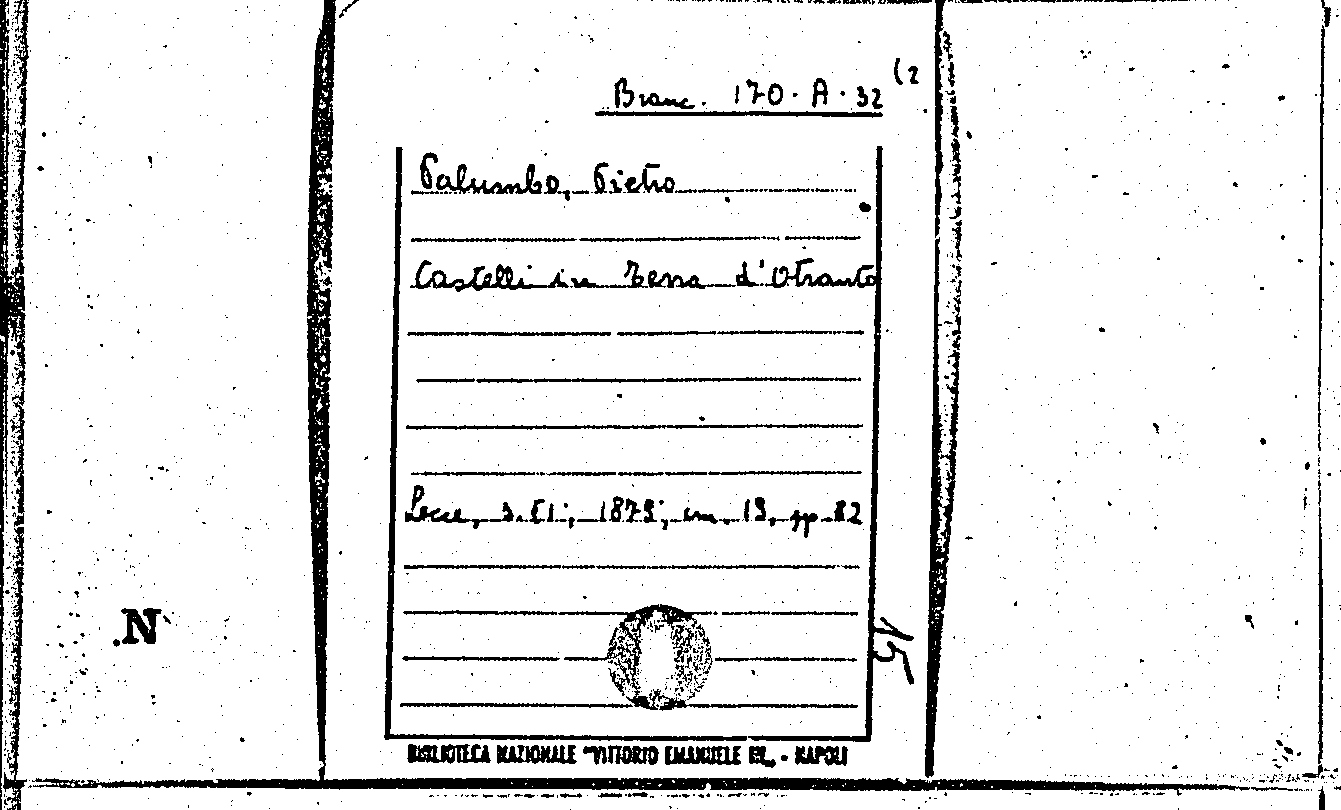 Branc. 170. A. 32 (2
Palumbo, Pietro
Castelli in Terra d'Otranto
Lecce, s. Ei; 1879; cm. 19, pp. 82
15
.N
BIBLIOTECA NAZIONALE "VITTORIO EMANUELE III„ - NAPOLI